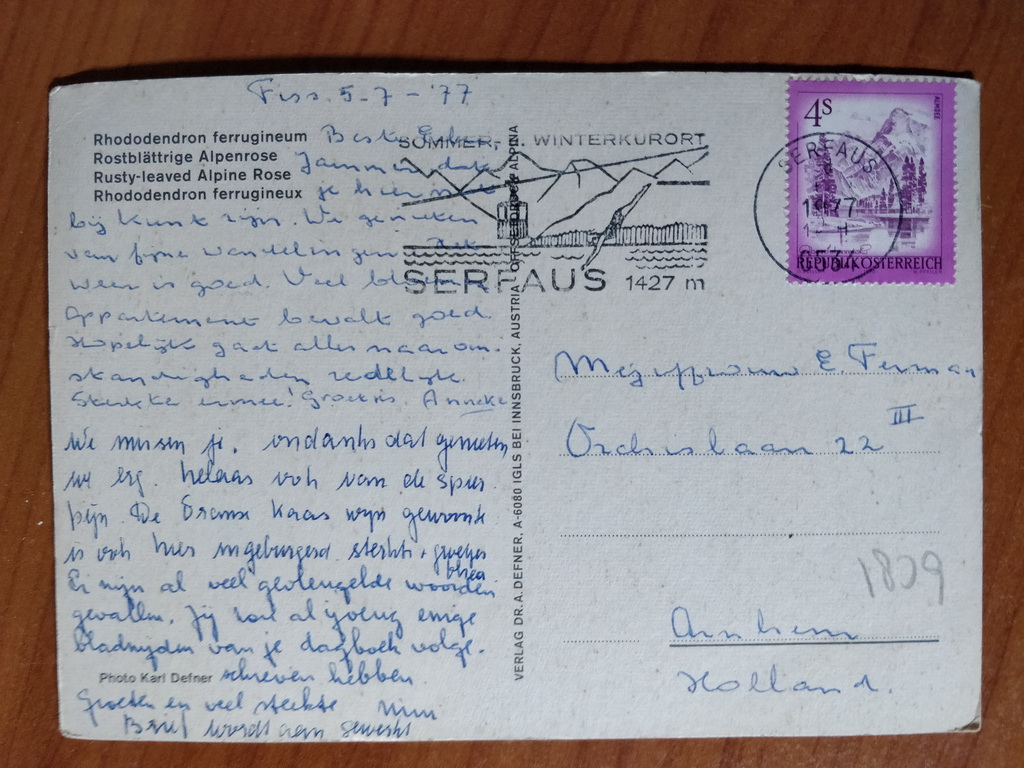 Fiss. 5-7-'77
Rhododendron ferrugineum
Rostblättrige Alpenrose
Rusty-leaved Alpine Rose
Rhododendron ferrugineux
Beste
Jammer dat
je hier niet
bij kunt zijn. We genieten
van fijne wandelingen. Het
weer is goed. Veel bloemen
Appartement bevalt goed.
Hopelijk gaat alles naar om-
standigheden redelijk.
Sterkte ermee! Groetjes. Anneke
We missen je, ondanks dat genieten
we erg. helaas ook van de spier
pijn. De Franse kaas wijn gewoonte
is ook hier ingeburgerd sterkte + groetjes
Thea
Er zijn al veel gevleugelde woorden
gevallen. Jij zal al enige
bladzijden van je dagboek volge-
Photo Karl Defner
schreven hebben.
Groeten en veel sterkte Wim
Brief wordt aan gewerkt
SOMMER- U. WINTERKURORT
SERFAUS 1427 m
VERLAG DR. A. DEFNER, A-6080 IGLS BEI INNSBRUCK, AUSTRIA
ALPINA
4S
ALMSEE
REPUBLIK ÖSTERREICH
SERFAUS
1977
6534
Mejuffrouw E. Ferman
Orchislaan 22 III
1809
Arnhem
Holland.